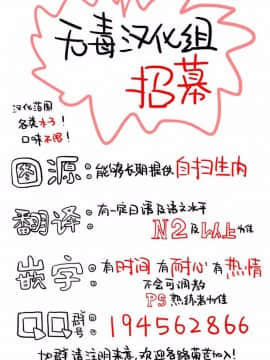 无毒汉化组
招募
汉化范围
各类本子!
口味不限!
图源:能够长期提供自扫生肉
翻译:有一定日语及语文水平
N2及以上为佳
嵌字:有时间有耐心有热情
不会可调教
PS熟练者为佳
QQ群号:194562866
加群请注明来意,欢迎各路萌萌加入!